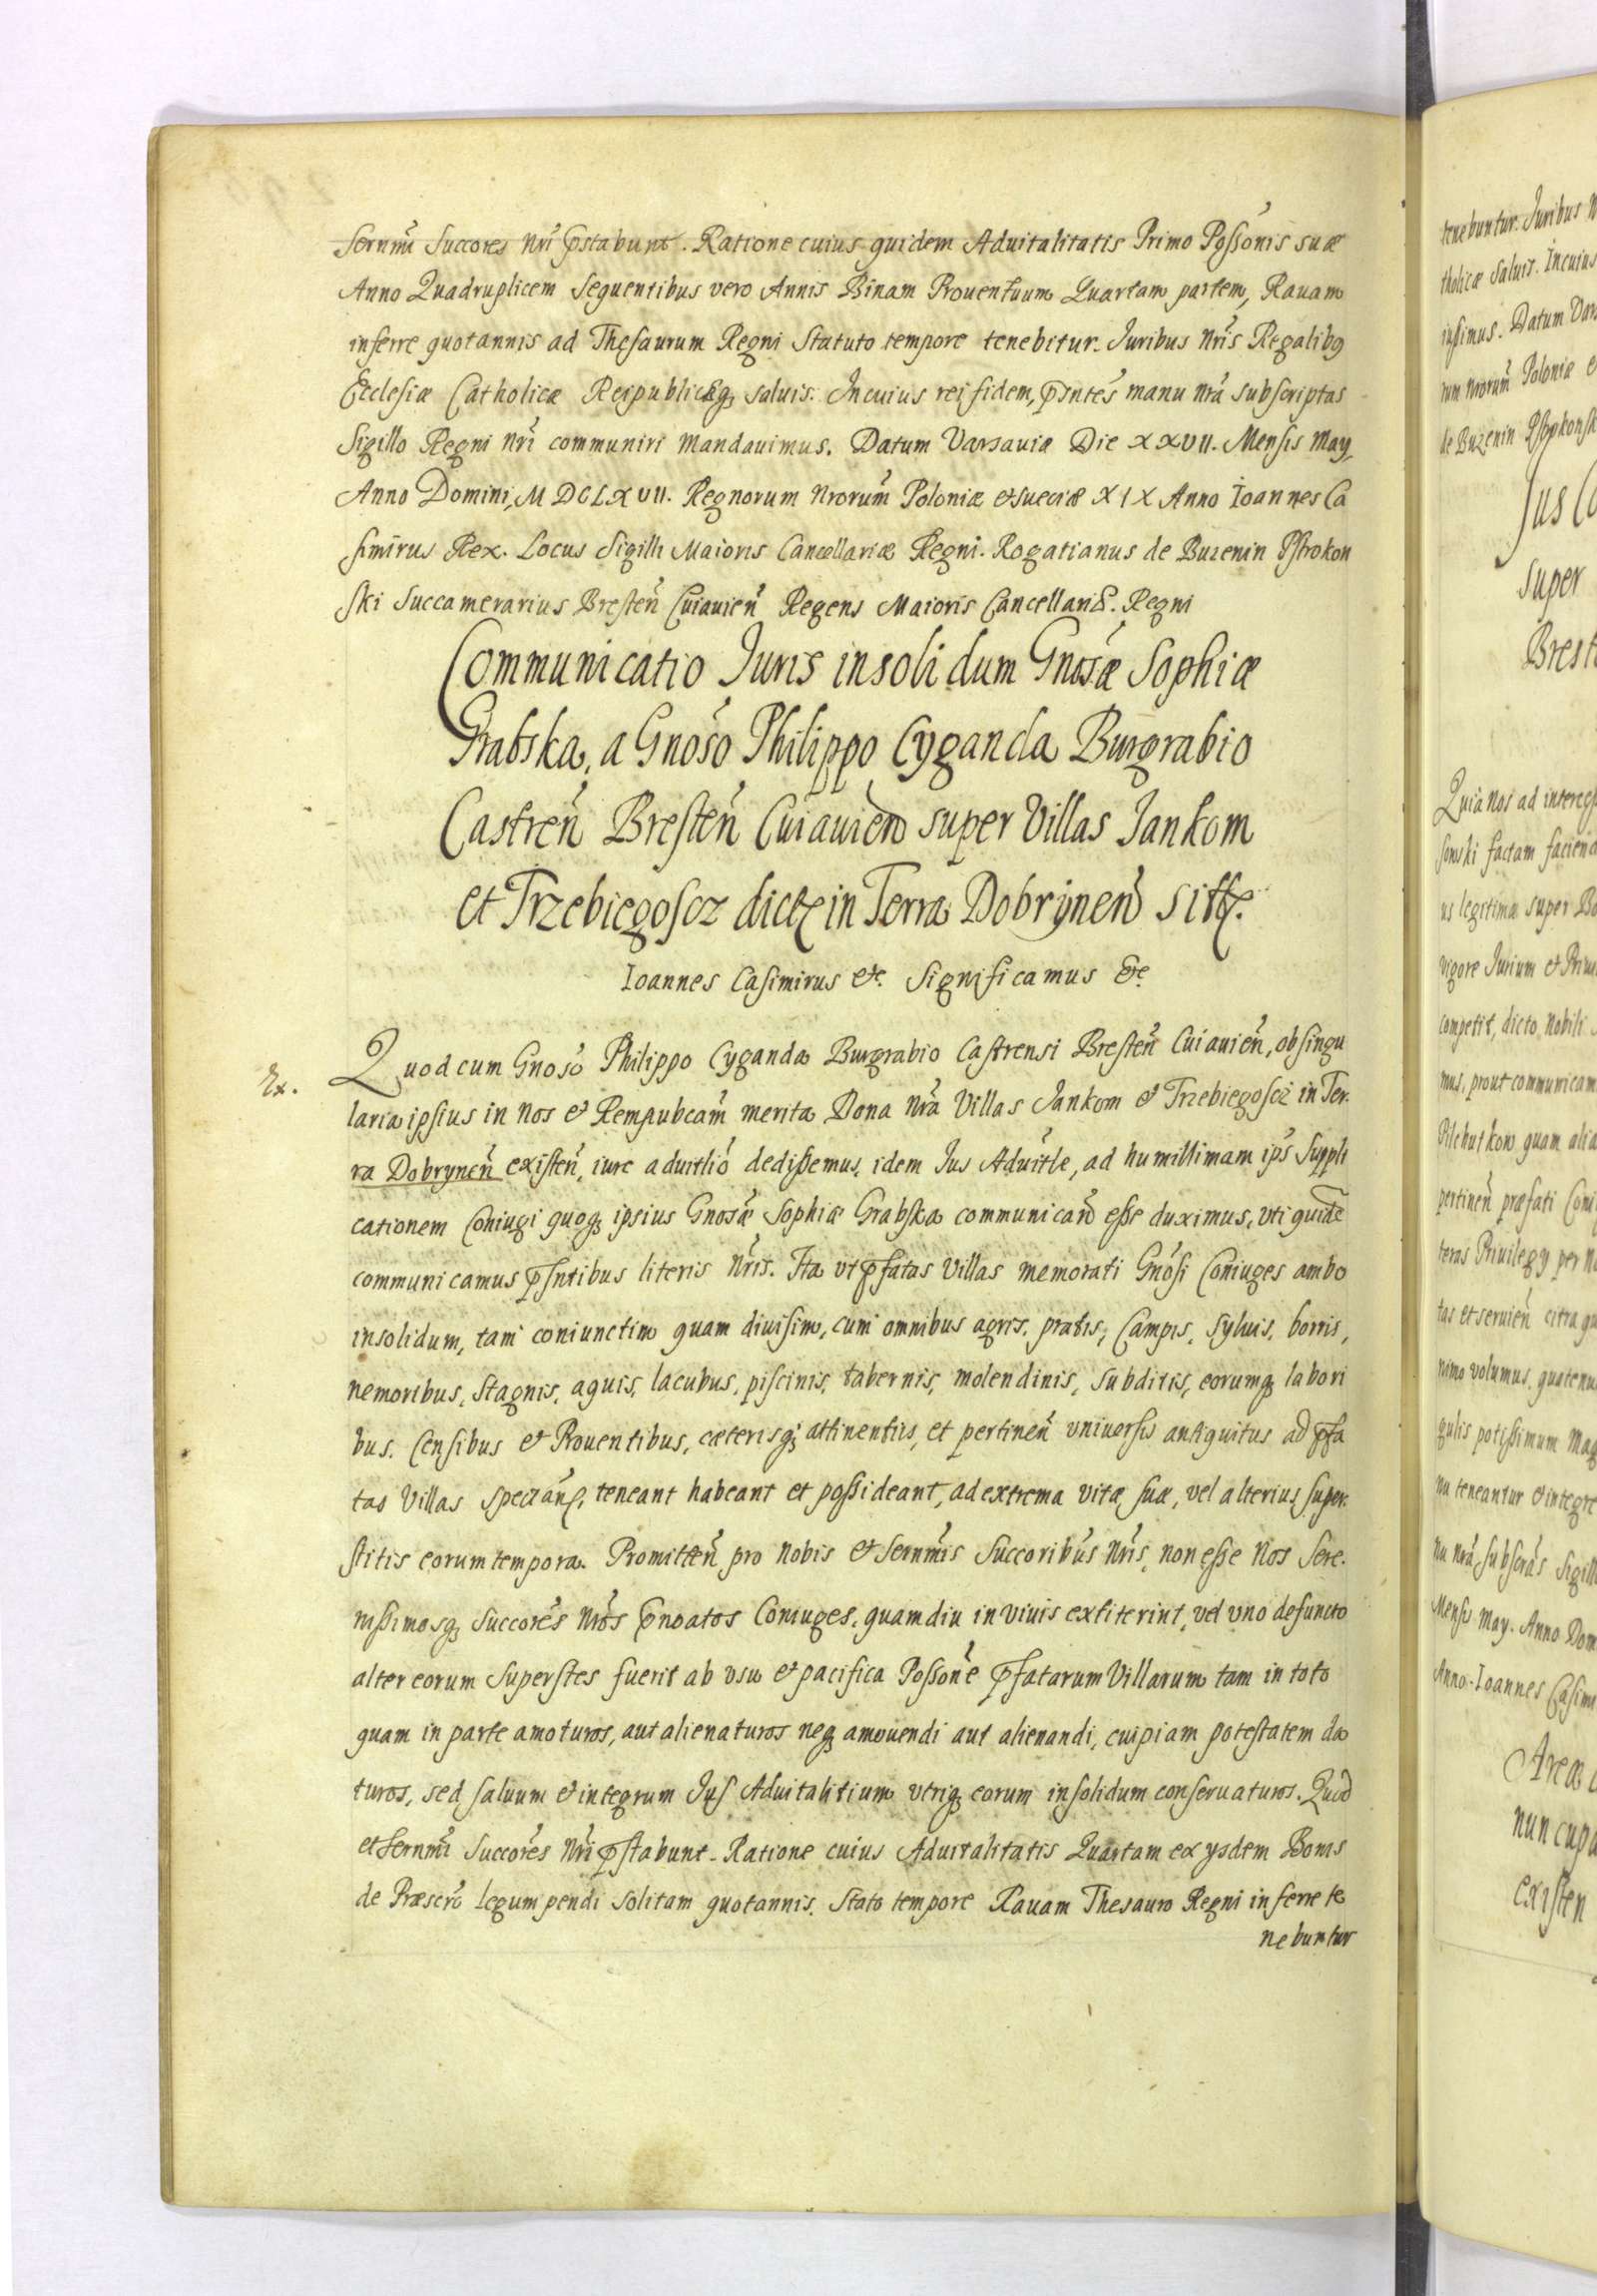 Sernmi Succores nri pstabunt. Ratione cuius quidem Aduitalitatis Primo Possonis suæ
Anno Quadruplicem sequentibus vero Annis Binam Prouentuum Quartam partem, Rauam
inferre quotannis ad Thesaurum Regni statuto tempore tenebitur. Iuribus nris Regalibq
Ecclesiæ Catholicæ Reipublicæq saluis. In cuius rei fidem, pntes manu nra subscriptas
Sigillo Regni nri communiri mandauimus. Datum Varsauiæ Die XXVII. Mensis May,
Anno Domini, MDCLXVII. Regnorum nrorum Poloniæ et sueciæ XIX Anno Ioannes Ca
simirus Rex. Locus Sigilli Maioris Cancellariæ Regni. Rogatianus de Buzenin Pstrokon
ski Succamerarius Bresten Cuiauien Regens Maioris Cancellariæ. Regni
Communicatio Iuris insolidum Gnosæ Sophiæ
Grabska, a Gnoso Philippo Cyganda Burgrabio
Castren Bresten Cuiauien super Villas Jankom
et Trzebiegoscz dictę in Terra Dobrynen sitę.
Ioannes Casimirus etc. Significamus etc
Ex.
Quod cum Gnoso Philippo Cyganda Burgrabio Castrensi Bresten Cuiauien, ob singu
laria ipsius in nos et Rempubcam merita Dona nra Villas Jankom et Trzebiegoscz in Ter-
ra Dobrynen existen, iure aduitlio dedissemus, idem Ius Aduitle, ad humillimam ips Suppli
cationem Coniugi quoq ipsius Gnosæ Sophiæ Grabska communicand esse duximus, vti quide
communicamus psntibus literis nris. Ita vt pfatas Villas memorati Gnosi Coniuges ambo
insolidum, tam coniunctim quam diuisim, cum omnibus agris. pratis, Campis, syluis, borris,
nemoribus, stagnis, aquis, lacubus, piscinis, tabernis, molendinis, subditis, eorumq labori
bus. Censibus et Prouentibus, cæterisq attinentiis, et pertinen vniuersis antiquitus ad pfa
tas Villas spectan, teneant habeant et possideant, ad extrema vitæ suæ, vel alterius super-
stitis eorum tempora. Promitten pro nobis et Sernmis Succoribus nris, non esse Nos Sere-
nissimosq Succores nros pnoatos Coniuges, quamdiu in viuis extiterint, vel vno defuncto
alter eorum superstes fuerit ab vsu et pacifica Possone pfatarum Villarum tam in toto
quam in parte amoturos, aut alienaturos neq amouendi aut alienandi, cuipiam potestatem da
turos, sed saluum et integrum Jus Aduitalitium vtriq eorum insolidum conseruaturos. Quod
et Sernmi Succores nri pstabunt. Ratione cuius Aduitalitatis Quartam ex ysdem Bonis
de Præscro legum pendi solitam quotannis. stato tempore Rauam Thesauro Regni inferre te
nebuntur
tenebuntur. Iuribus
tholicæ saluis. In cuius
iussimus. Datum
rum nrorum Poloniæ
de Buzenin
Jus
super
Quia nos ad
sowski factam
us legitima super
vigore Iurium et
competit, dicto Nobili
mus, prout
quam
pertinen præfati
teras Priuilegy per
tas et seruien citra
nimo volumus, quatenus
gulis potissimum
nu teneantur et
nu nra subscras
Mensis May. Anno
Anno. Ioannes
Area
existen